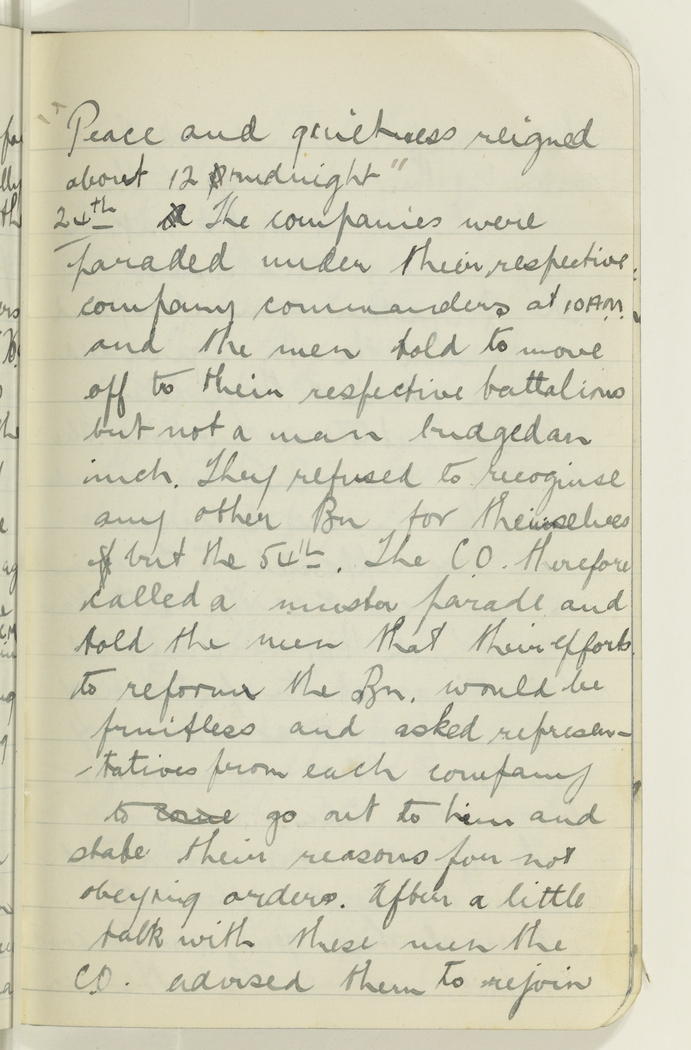 Peace and quietness reigned
about 12 midnight"
24th The companies were
paraded under their respective
company commanders at 10 A.M.
and the men told to move
off to their respective battalions
but not a man budged an
inch. They refused to recognise
any other Bn for themselves
but the 54th. The CO. therefore
called a muster parade and
told the men that their efforts
to reform the Bn. would be
fruitless and asked represen-
-tatives from each company
to come go out to him and
state their reasons for not
obeying orders. After a little
talk with these men the
C.O. advised them to rejoin